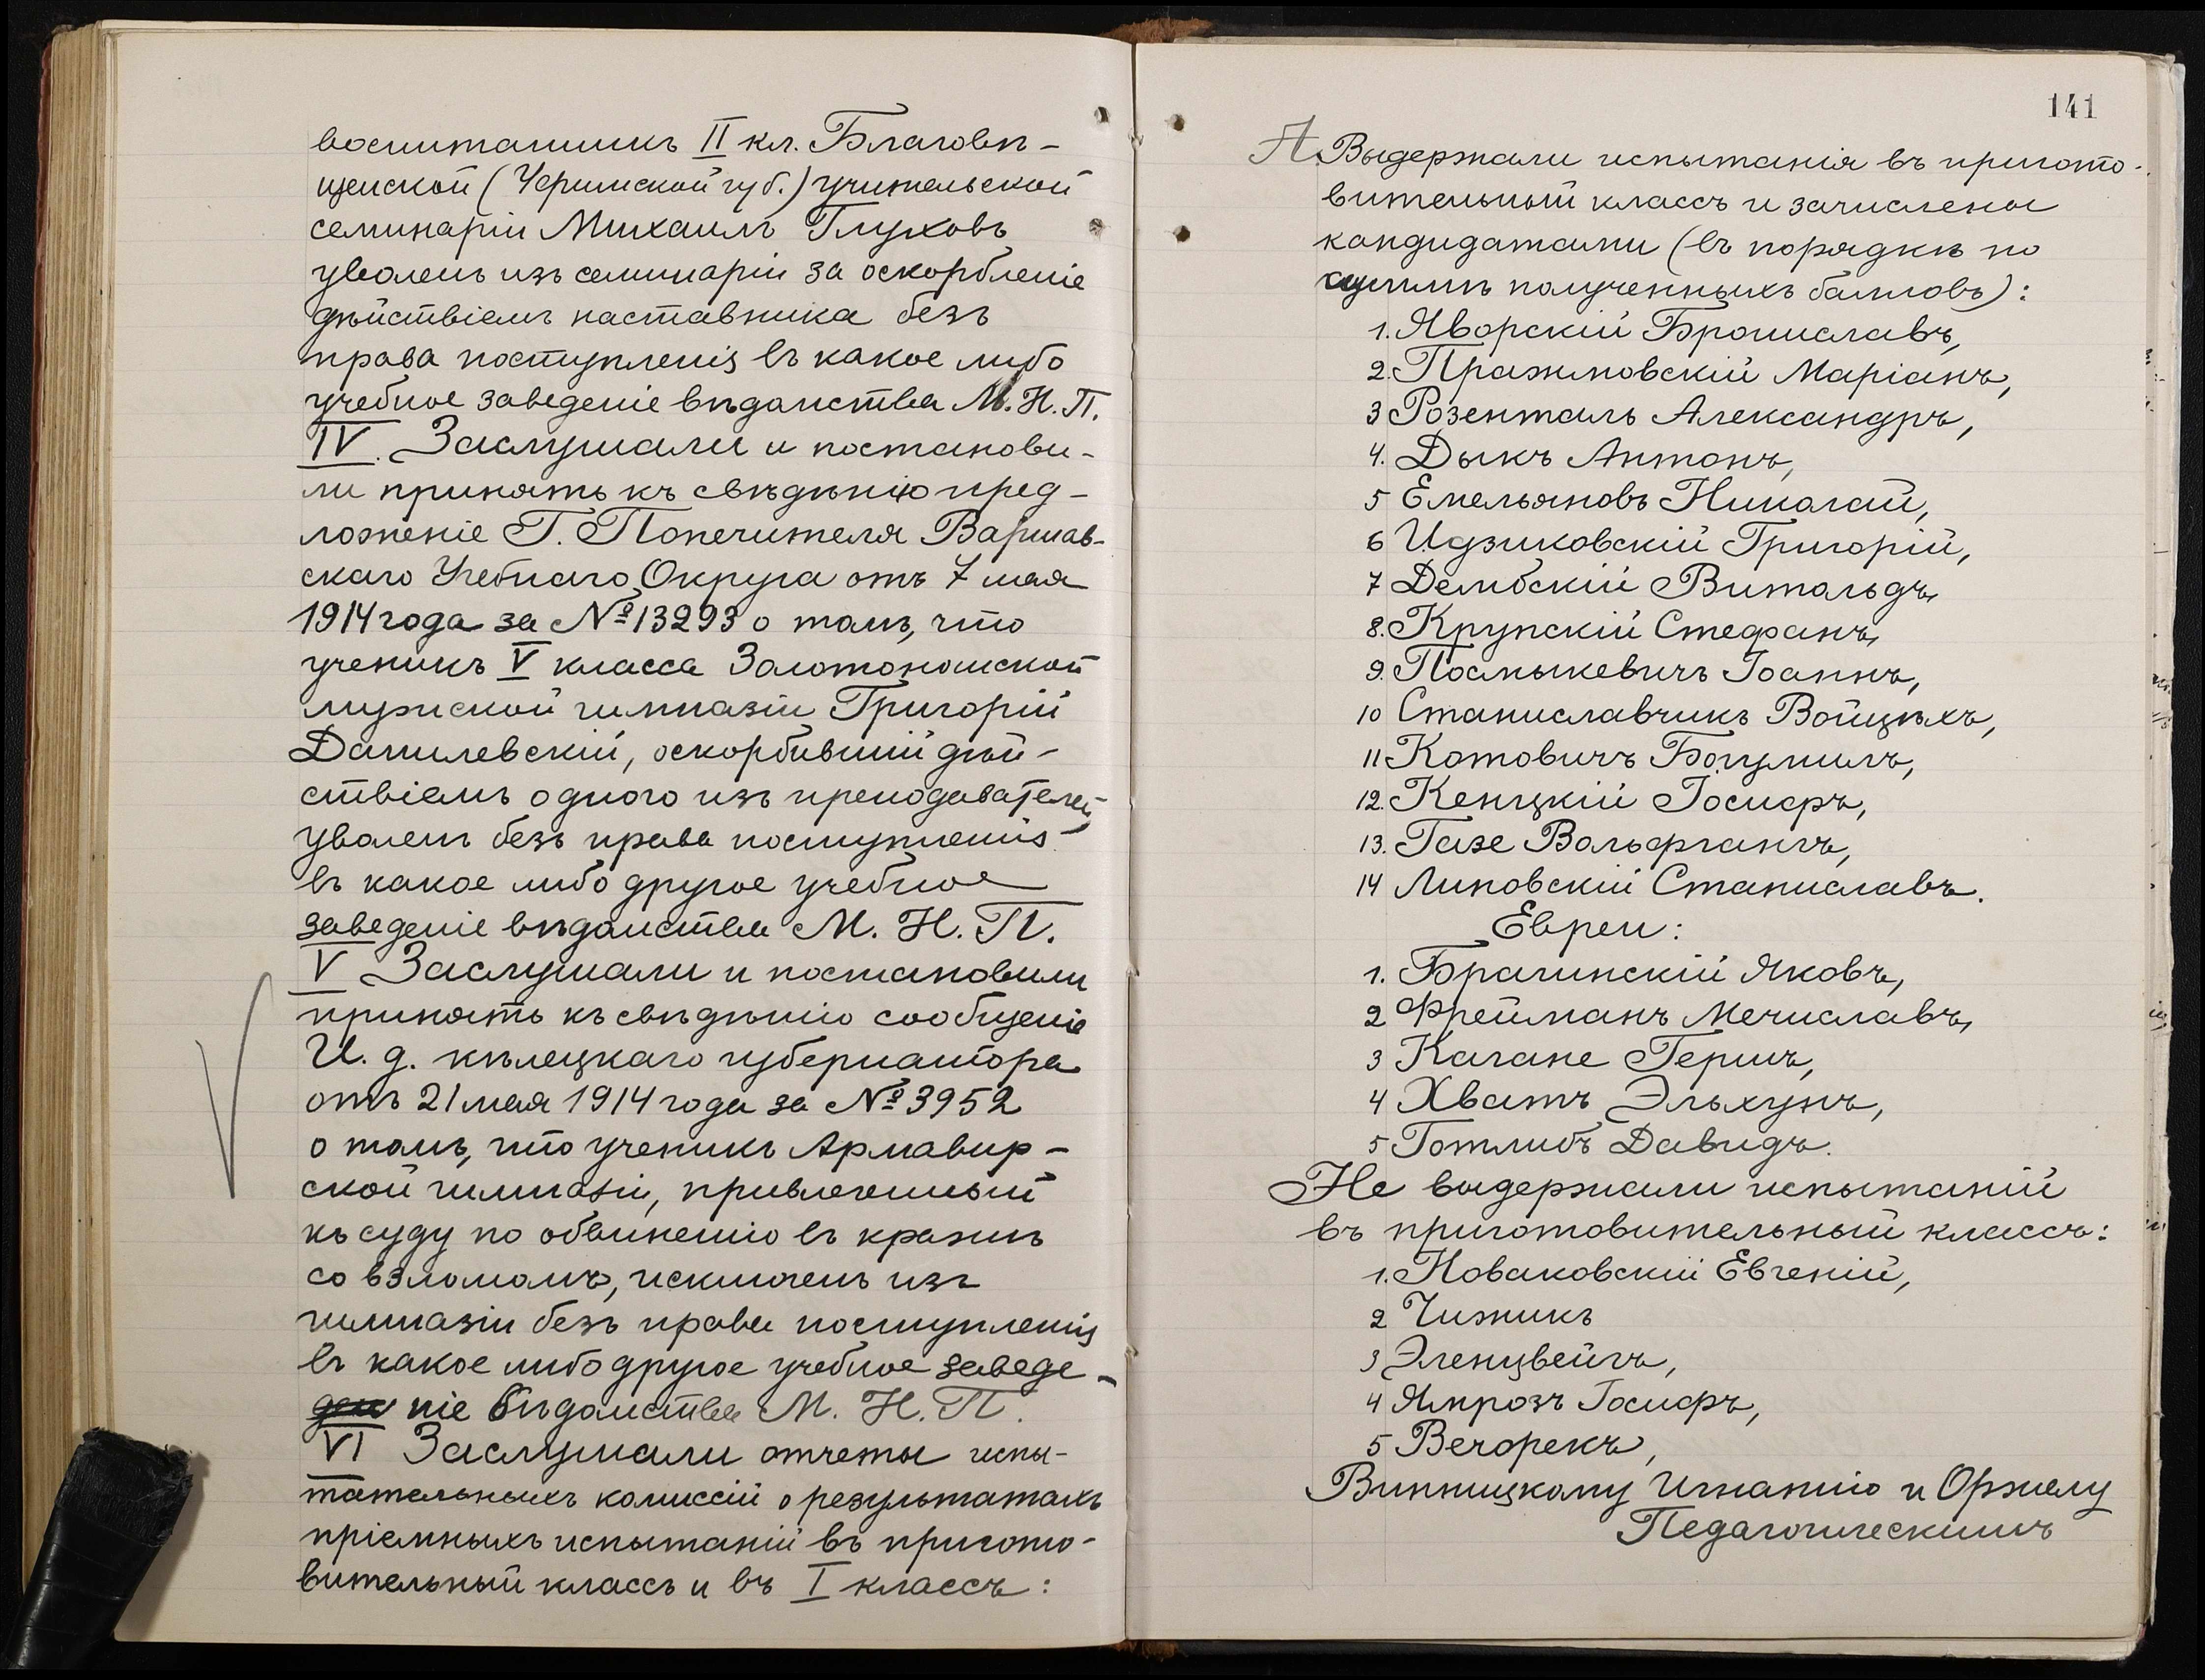 воспитанникъ II кл. Благовѣ-
щенской (Уфимской губ.) учительской
семинаріи Михаилъ Глуховъ
уволенъ изъ семинаріи за оскорбленіе
дѣйствіемъ наставника безъ
права поступленія въ какое либо
учебное заведеніе вѣдомства М. Н. П.
IV. Заслушали и постанови-
ли принять къ свѣдѣнію пред-
ложеніе Г. Попечителя Варшав-
скаго Учебнаго Округа отъ 7 мая
1914 года за № 13293 о томъ, что
ученикъ V класса Золотоношской
мужской гимназіи Григорій
Данилевскій, оскорбившій дѣй-
ствіемъ одного изъ преподавателей,
уволенъ безъ права поступленія
въ какое либо другое учебное
заведеніе вѣдомства М. Н. П.
V Заслушали и постановили
принять къ свѣдѣнію сообщеніе
И. д. кѣлецкаго губернатора
отъ 21 мая 1914 года за № 3952
о томъ, что ученикъ Армавир-
ской гимназіи, привлеченный
къ суду по обвиненію въ кражѣ
со взломомъ, исключенъ изъ
гимназіи безъ права поступленія
въ какое либо другое учебное заведе-
ніе вѣдомства М. Н. П.
VI Заслушали отчеты испы-
тательныхъ комиссій о результатахъ
пріемныхъ испытаній въ пригото-
вительный классъ и въ I классъ:
141
А. Выдержали испытанія въ пригото-
вительный классъ и зачислены
кандидатами (въ порядкѣ по
суммѣ полученныхъ балловъ):
1. Яворскій Брониславъ,
2. Пражмовскій Маріанъ,
3 Розенталь Александръ,
4. Дыкъ Антонъ,
5 Емельяновъ Николай,
6 Идзиковскій Григорій,
7 Дембскій Витольдъ,
8. Крупскій Стефанъ,
9. Посмыкевичъ Іоаннъ,
10 Станиславчикъ Войцѣхъ,
11 Котовичъ Богумилъ,
12. Кенцкій Іосифъ,
13. Газе Вольфгангъ,
14 Липовскій Станиславъ.
Евреи:
1. Брагинскій Яковъ,
2 Фрейманъ Мечиславъ,
3 Кагане Гершъ,
4 Хватъ Эльхунъ,
5 Готлибъ Давидъ.
Не выдержали испытаній
въ приготовительный классъ:
1. Новаковскій Евгеній,
2 Чижикъ
3 Эленцвейгъ,
4 Ямрозъ Іосифъ,
5 Вечорекъ,
Винницкому Игнатію и Оржелу
Педагогическимъ